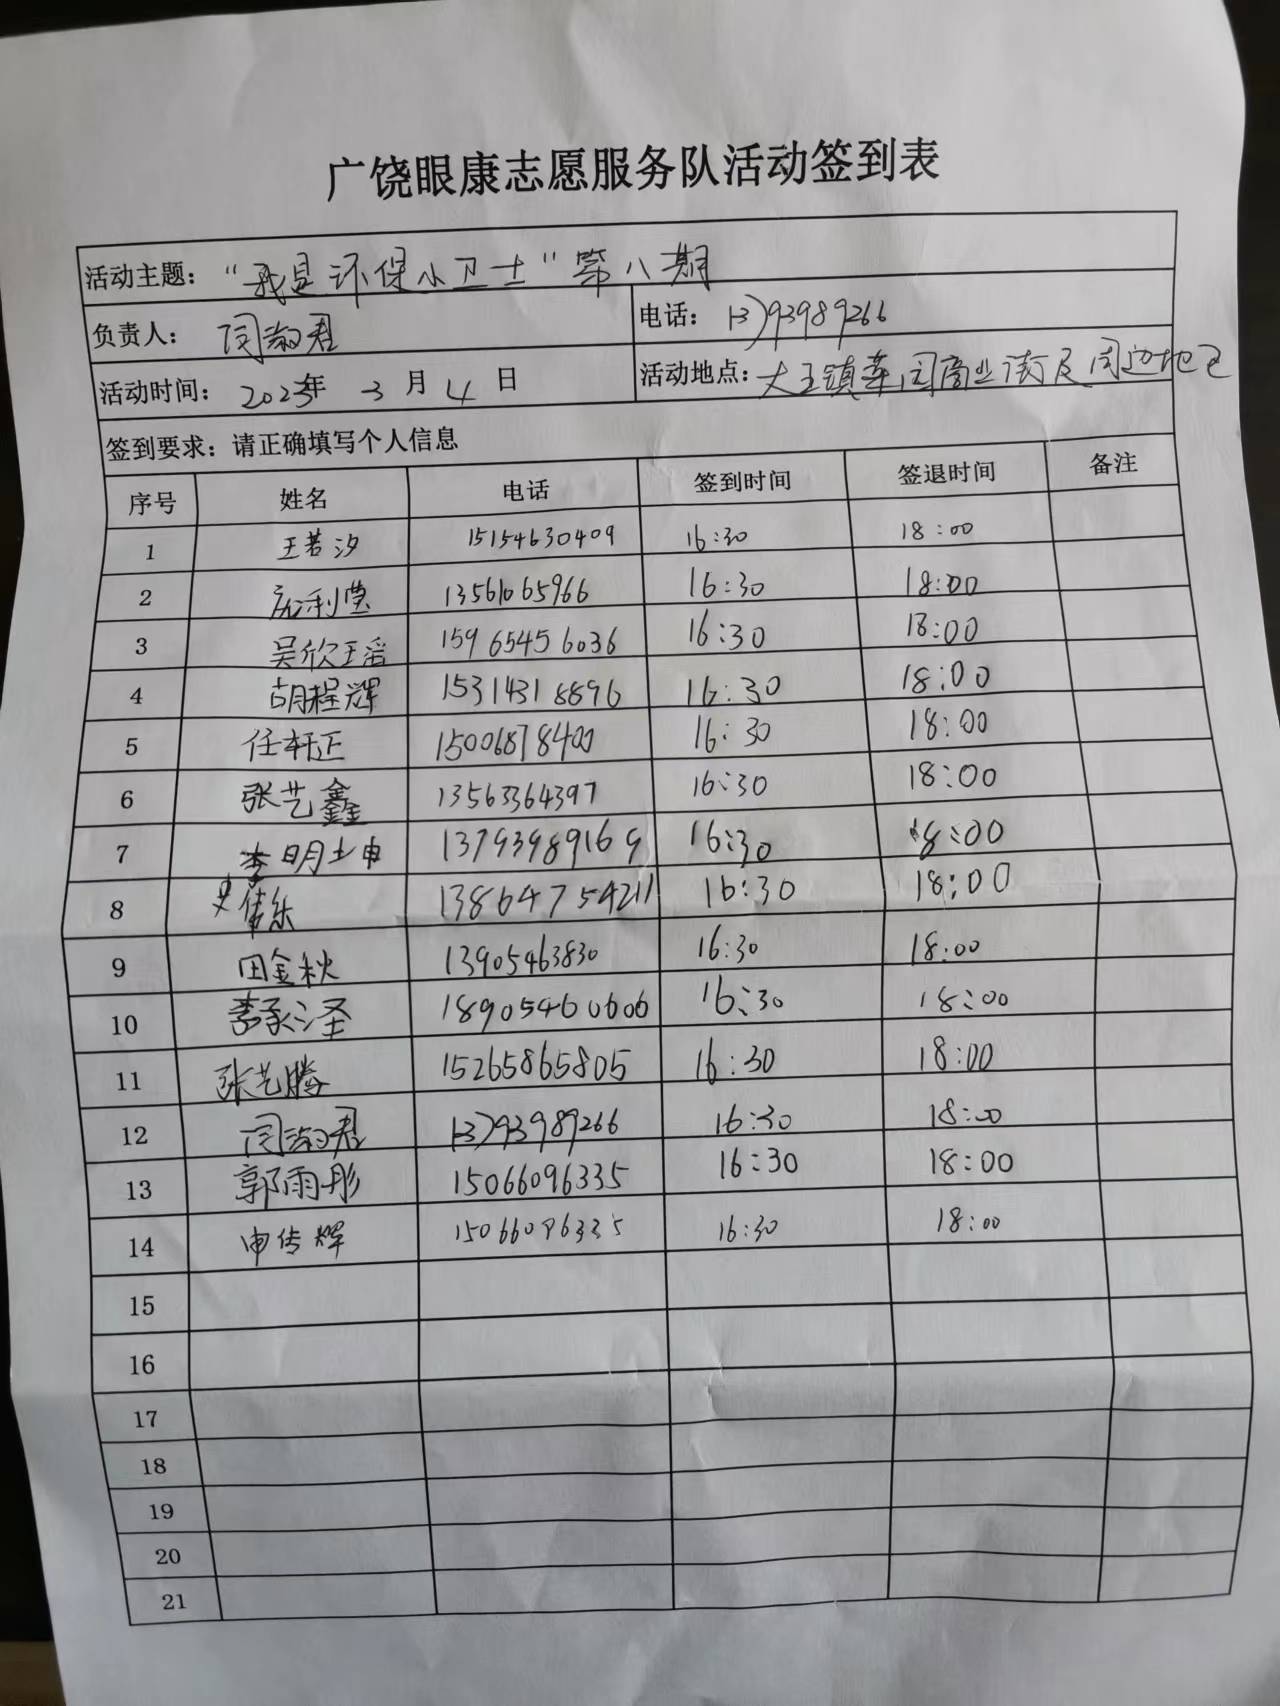 广饶眼康志愿服务队活动签到表
活动主题：“我是环保小卫士”第八期
负责人：闫淑君 电话：13793989266
活动时间：2023年 3月 4日 活动地点：大王镇华园商业街及周边地区
签到要求：请正确填写个人信息
序号 姓名 电话 签到时间 签退时间 备注
1 王若汐 15154630409 16:30 18:00
2 利莹 13561065966 16:30 18:00
3 吴欣瑶 15965456036 16:30 18:00
4 胡程辉 15314318896 16:30 18:00
5 任轩正 15006878400 16:30 18:00
6 张艺鑫 13563364397 16:30 18:00
7 李明 13793989169 16:30 18:00
8 13864754211 16:30 18:00
9 田金秋 13905463830 16:30 18:00
10 李承泽 18905460606 16:30 18:00
11 张艺腾 15265865805 16:30 18:00
12 闫淑君 13793989266 16:30 18:00
13 郭雨彤 15066096335 16:30 18:00
14 申传辉 15066096335 16:30 18:00
15
16
17
18
19
20
21